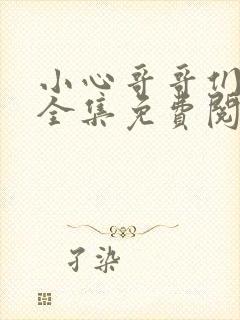 小心哥哥们
全集免费阅
孑染